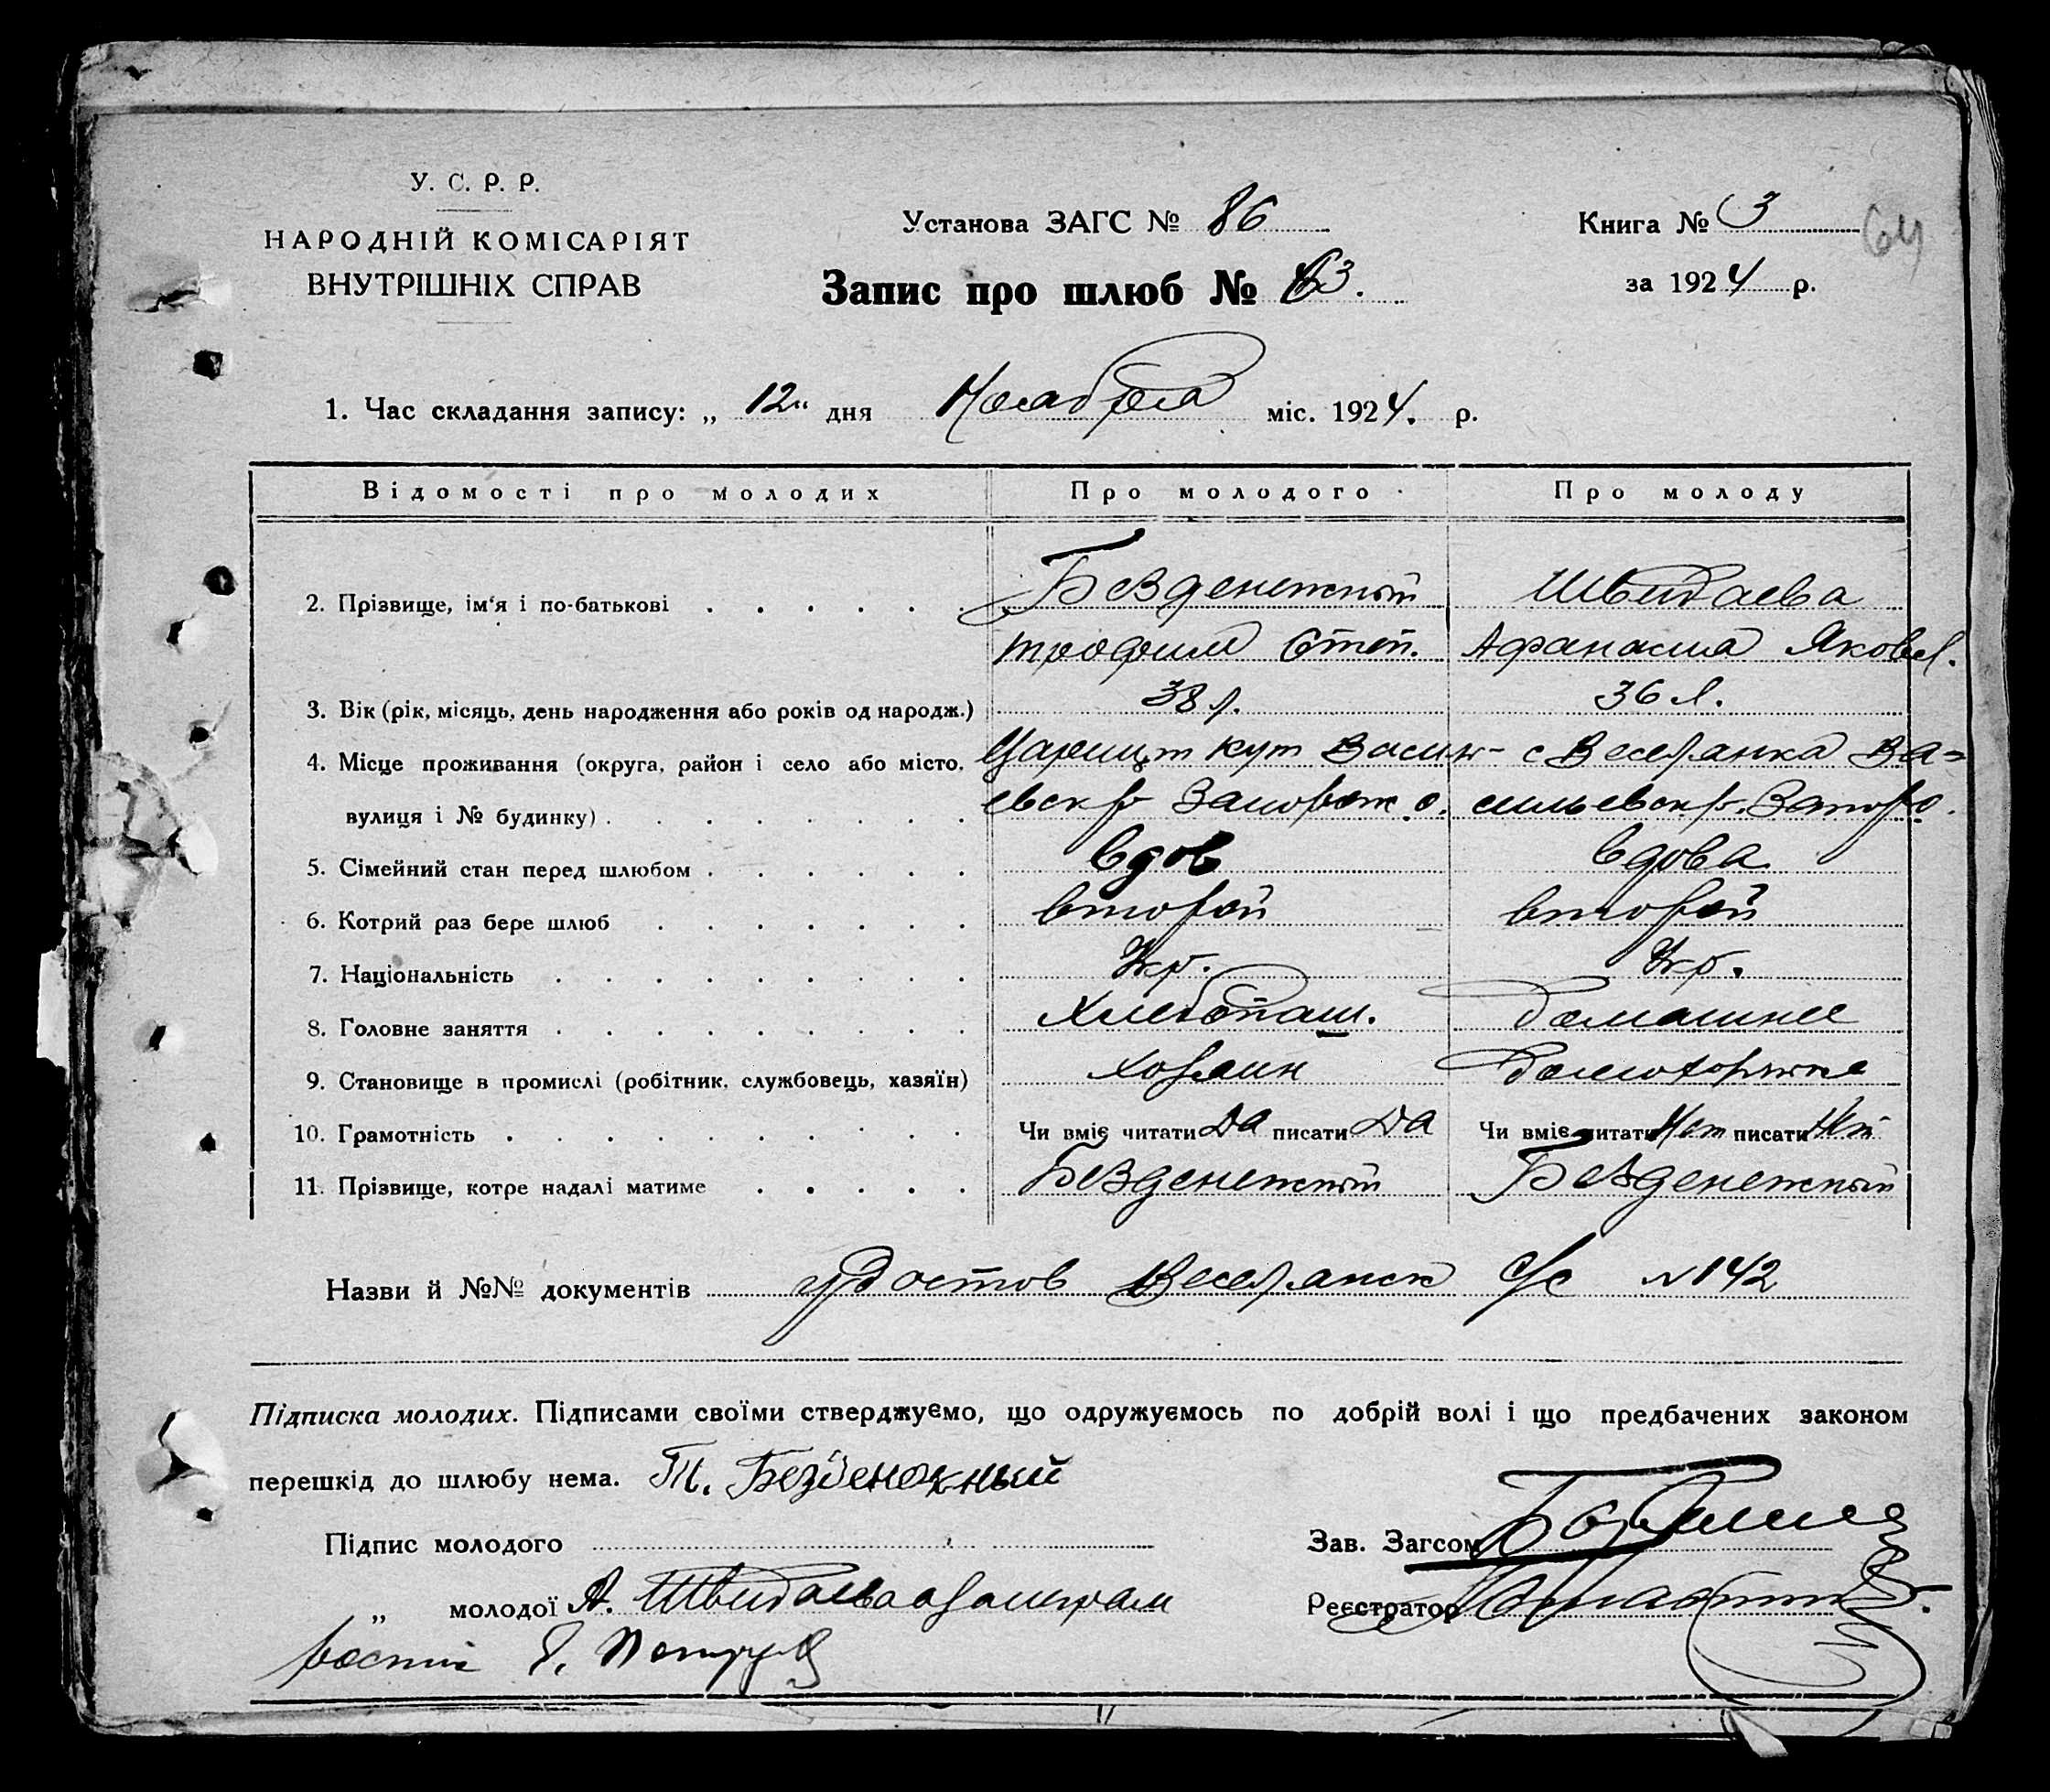 У. С. Р. Р.
НАРОДНІЙ КОМІСАРІЯТ
ВНУТРІШНІХ СПРАВ
Установа ЗАГС № 86
Запис про шлюб № 63.
Книга № 3
64
за 1924 р.
1. Час складання запису: „ 12 " дня Ноября міс. 1924. р.
Відомості про молодих Про молодого Про молоду
2. Прізвище, ім'я і по-батькові Безденежный Швидаева
Трофим Степ. Афанасия Яковл.
3. Вік (рік, місяць, день народження або років од народж.) 38 л. 36 л.
4. Місце проживання (округа, район і село або місто, Царицын кут Васил- с Веселянка Ва=
вулиця і № будинку) евск р Запорож о. сильевск р. Запор о.
5. Сімейний стан перед шлюбом вдов вдова
6. Котрий раз бере шлюб второй второй
7. Національність Укр. Укр.
8. Головне заняття Хлебопаш. Домашнее
9. Становище в промислі (робітник, службовець, хазяїн) хозяин
10. Грамотність Чи вміє читати Да писати Да Чи вміє читати Нет писати Нет
11. Прізвище, котре надалі матиме Безденежный Безденежный
Назви й №№ документів удостов Веселянск с/с N 142
Підписка молодих. Підписами своїми стверджуємо, що одружуємось по добрій волі і що предбачених законом
перешкід до шлюбу нема. Т. Безденежный
Підпис молодого
Зав. Загсом
„ молодої А. Швидаева
Реєстратор